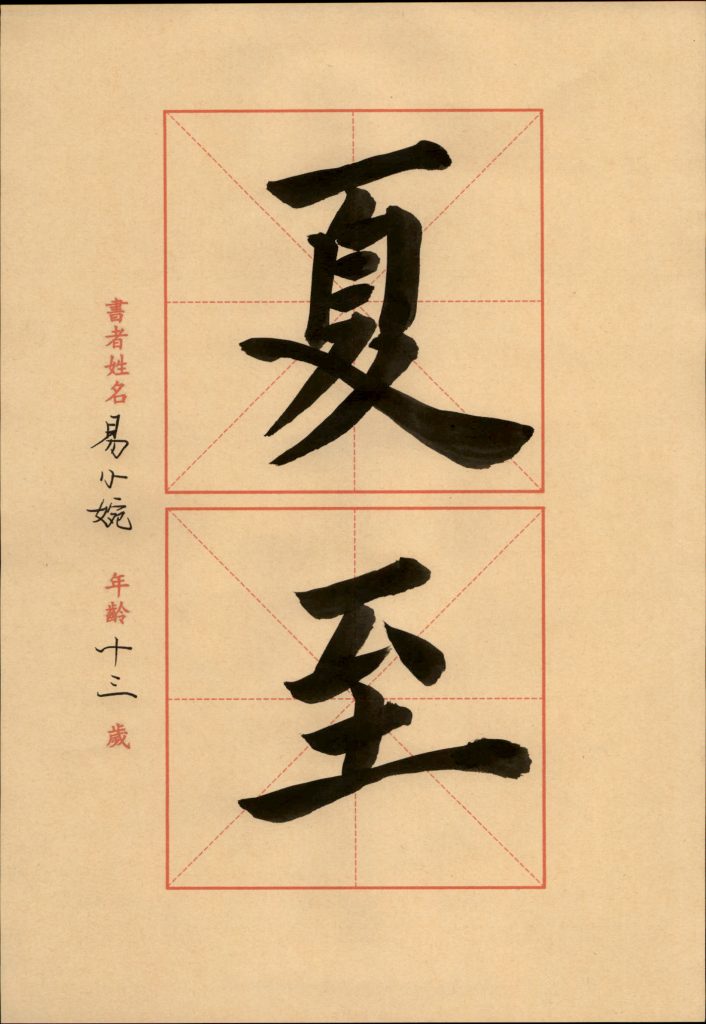 夏至
書者姓名易小婉 年齡十三歲